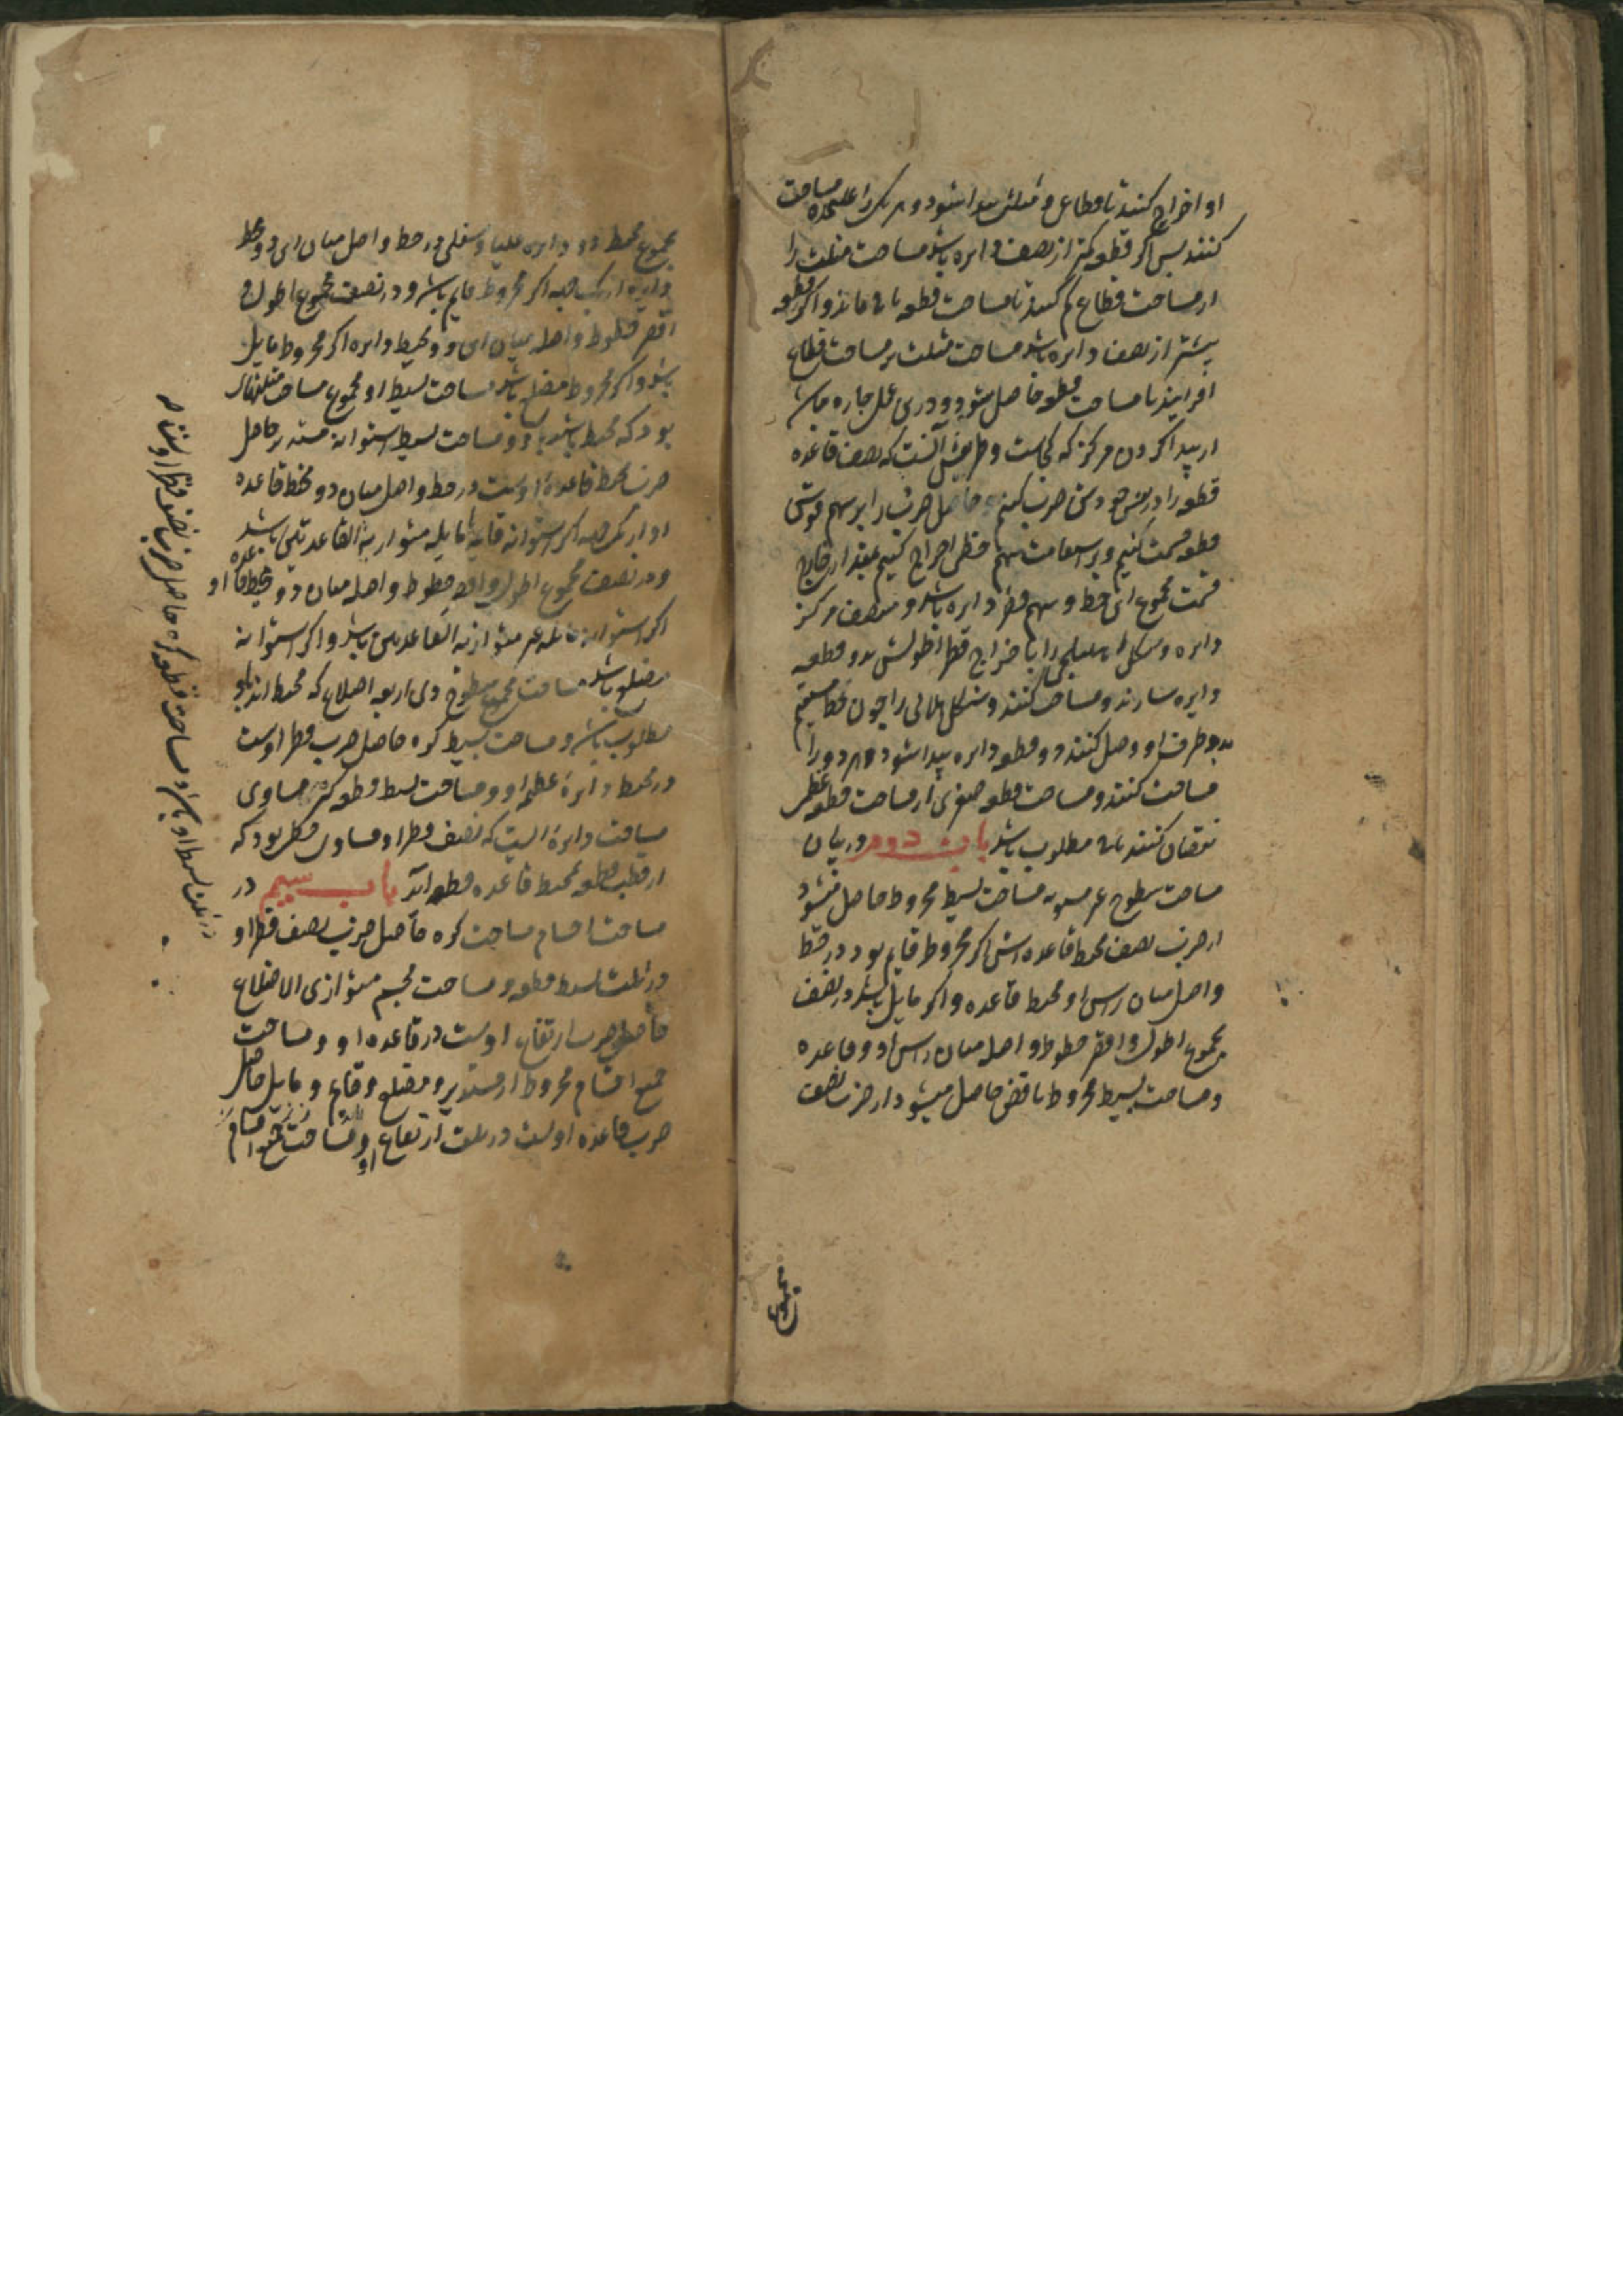 او اخراج کنند تا قطاعی و مثلثی پیدا شود و هر یک را علیحده مساحت
کنند پس اگر قطعه کمتر از نصف دایره باشد مساحت مثلث را
از مساحت قطاع کم کنند تا مساحت قطعه باقی ماند و اگر قطعه
بیشتر از نصف دایره باشد مساحت مثلث بر مساحت قطاع
افزایند تا مساحت قطعه حاصل شود و درین عمل چاره نباشد
از پیدا کردن مرکز که کجاست و طریقش آنست که نصف قاعده
قطعه را در نفس خودش ضرب کنیم و حاصل ضرب را بر سهم قوس
قطعه قسمت کنیم و بر استقامت سهم خطی اخراج کنیم بمقدار خارج
قسمت مجموع این خط و سهم قطر دایره باشد و منتصف مرکز
دایره و شکل اهلیلجی را باخراج قطر اطولش بدو قطعه
دایره سازند و مساحت کنند و شکل هلالی را چون بخط مستقیم
بدو طرف او وصل کنند دو قطعه دایره پیدا شود هر دو را
مساحت کنند و مساحت قطعه صغری از مساحت قطعه عظمی
نقصان کنند باقی مطلوب باشد باب دوم در بیان
مساحت سطوح غیر مستویه مساحت بسیط مخروط حاصل میشود
از ضرب نصف محیط قاعده اش اگر مخروط قایم بود در خط
واصل میان راس او و محیط قاعده و اگر مایل باشد در نصف
مجموع اطول و اقصر خطوط واصله میان راس او و قاعده
و مساحت بسیط مخروط ناقص حاصل میشود از ضرب نصف
مجموع
مجموع محیط دو دایره علیا و سفلی در خط واصل میان این دو محیط
دایره از یک جهه اگر مخروط قایم باشد و در نصف مجموع اطول و
اقصر خطوط واصله میان این دو محیط دایره اگر مخروط مایل
باشد و اگر مخروط مضلع باشد مساحت بسیط او مجموع مساحت مثلثات
بود که محیط باشد باو و مساحت بسیط استوانه مستدیر حاصل
ضرب محیط قاعدۀ اوست در خط واصل میان دو محیط قاعده
او از یک جهه اگر استوانه قایمه یا مایله متوازیة القاعدتین باشد
و در نصف مجموع اطول و اقصر خطوط واصله میان دو محیط قاعده او
اگر استوانه مایله غیر متوازیة القاعدتین باشد و اگر استوانه
مضلع باشد مساحت مجموع سطوح ذی اربعه اضلاع که محیط اند باو
مطلوب باشد و مساحت بسیط کره حاصل ضرب قطر اوست
در محیط دایرۀ عظیمه او و مساحت بسیط قطعه کره مساوی
مساحت دایرۀ ایست که نصف قطر او مساوی خطی بود که
از قطب قطعه بمحیط قاعده قطعه آید باب سیم در
مساحت اجسام مساحت کره حاصل ضرب نصف قطر او
در ثلث بسیط قطعه و مساحت مجسم متوازی الاضلاع
حاصل ضرب ارتفاع اوست در قاعده او و مساحت
جمیع اقسام مخروط از مستدیر و مضلع و قایم و مایل حاصل
ضرب قاعده اوست در ثلث ارتفاع او و مساحت جمیع اقسام
در ثلث بسیط او باشد و مساحت قطعه کره حاصل ضرب نصف قطر اوست